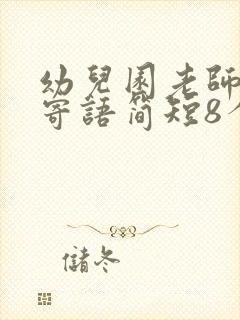 幼兒園老師
寄語簡短8个
儲冬